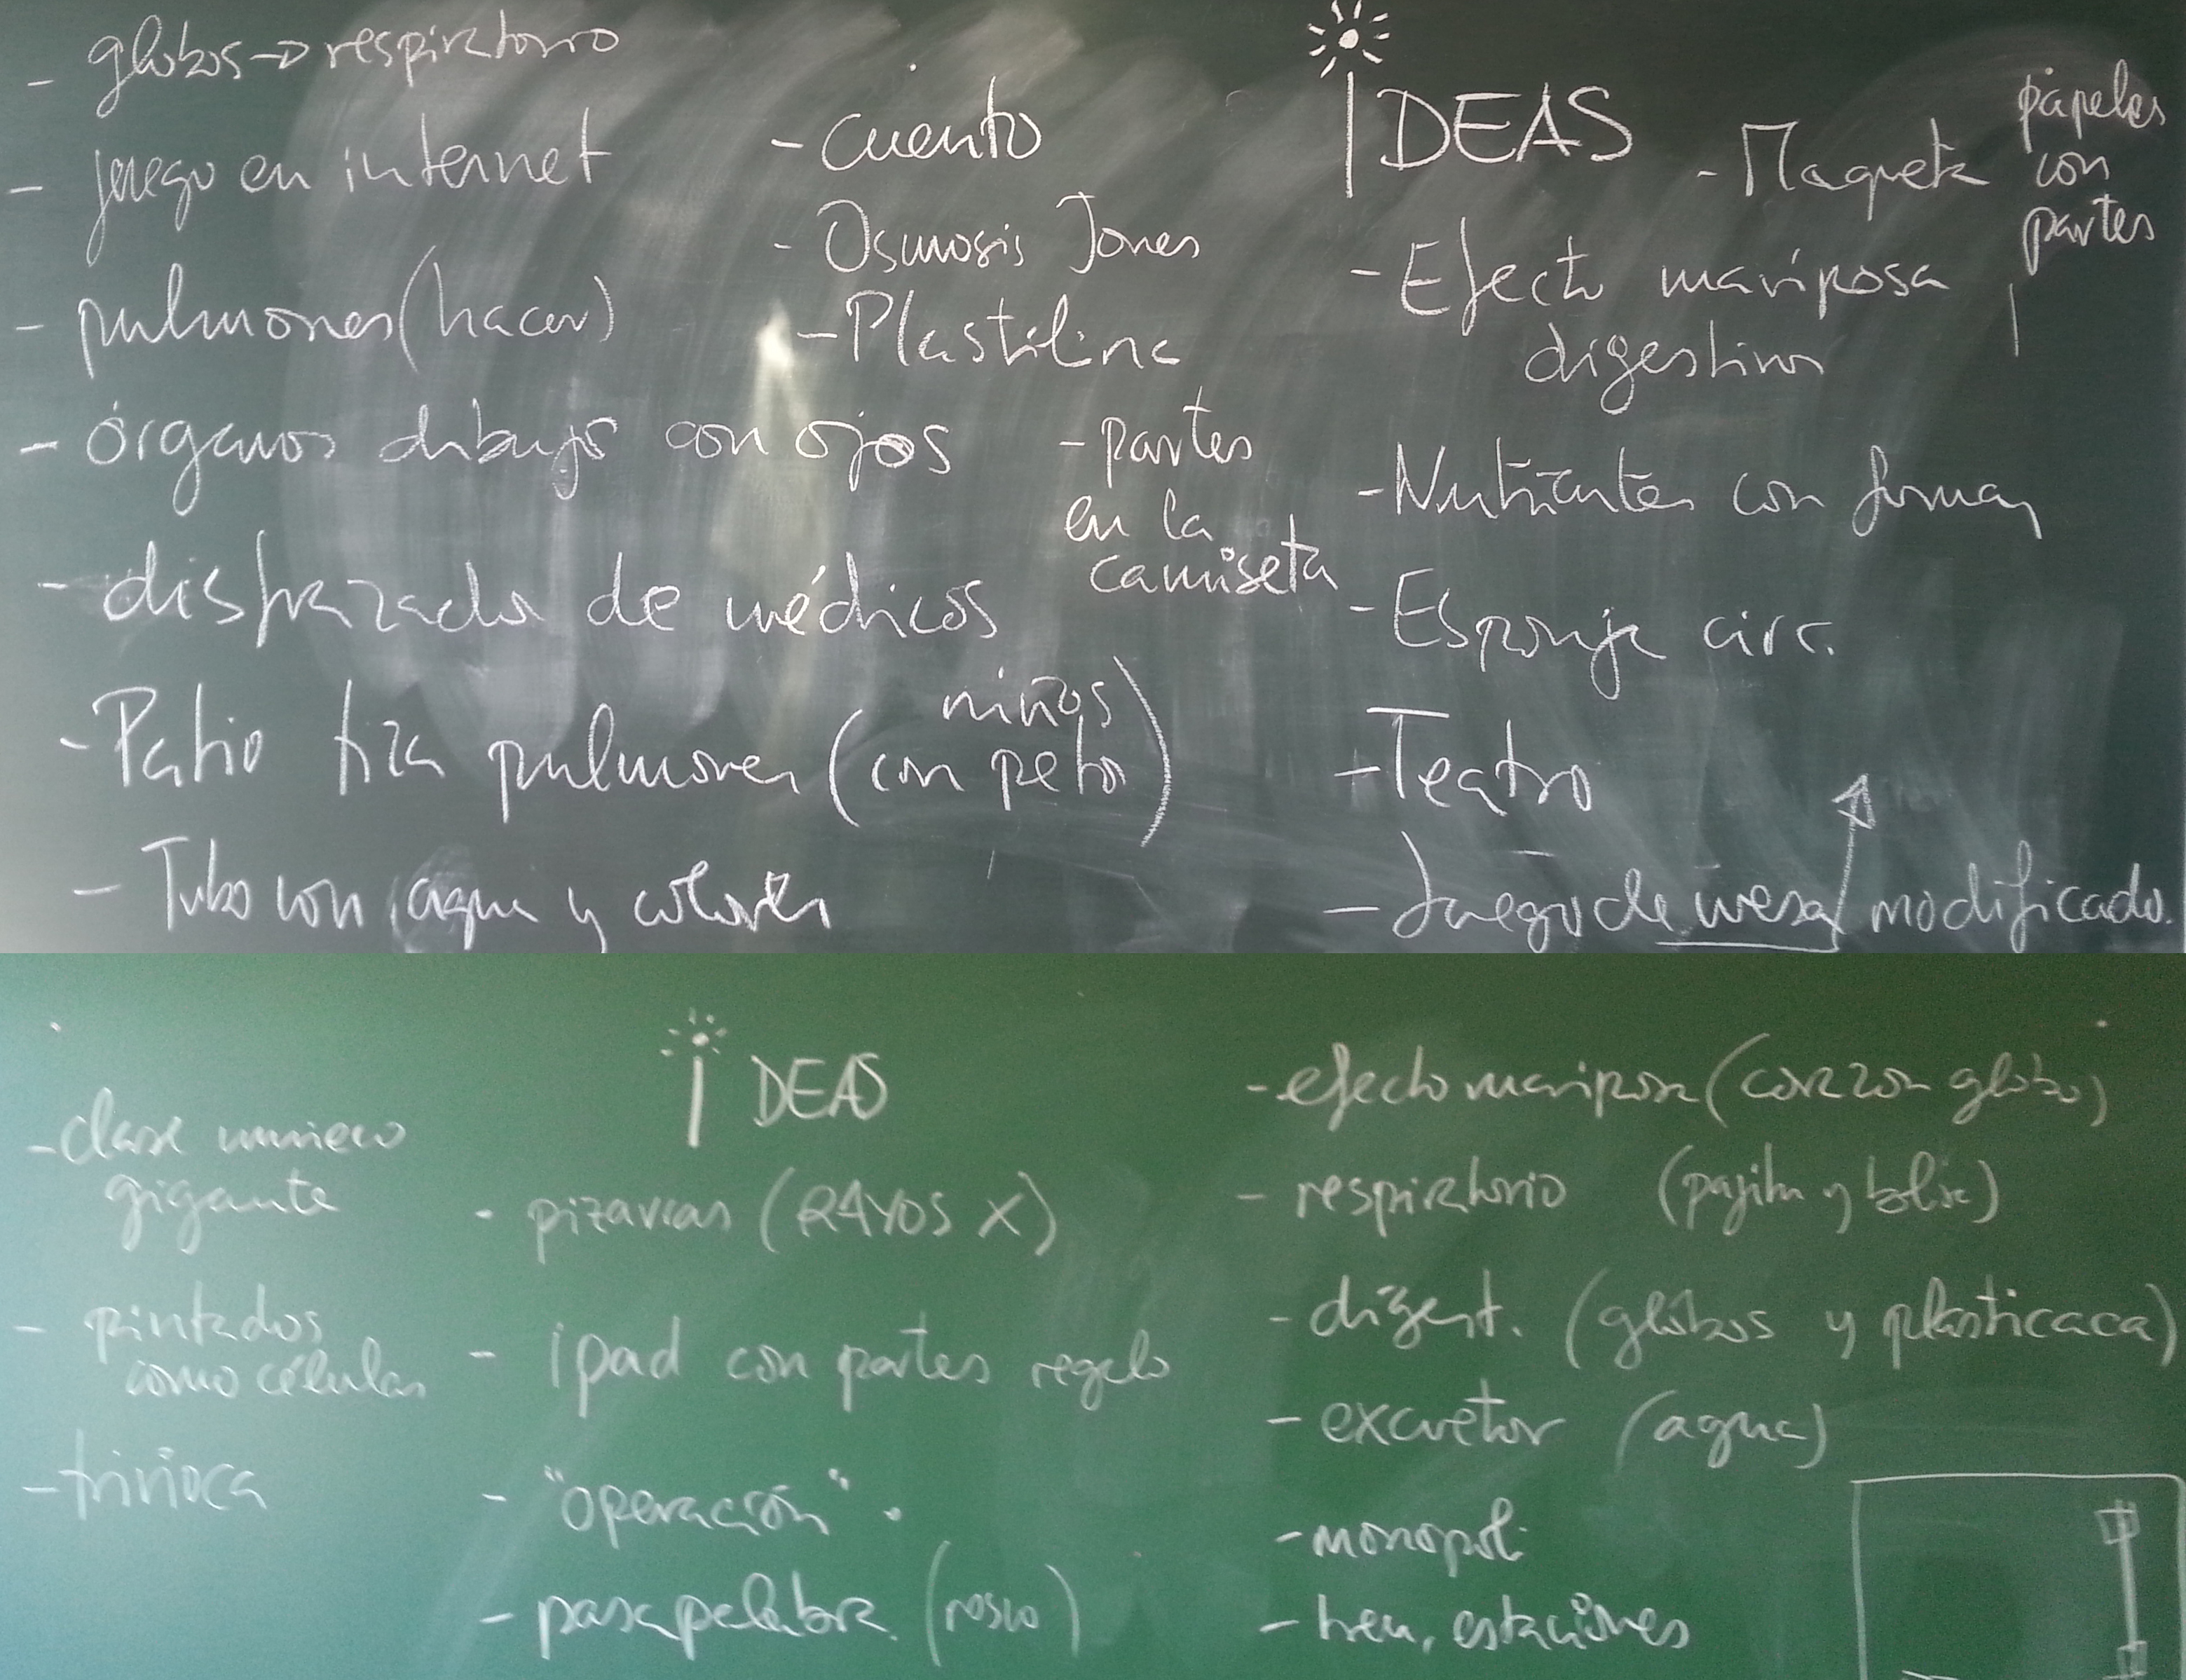 - globos → respiratorio
- juego en internet
- pulmones (hacer)
- órganos dibujo con ojos
- disfrazados de médicos
- Patio tiza pulmones (niños con petos)
- Tubo con agua y colores
- cuento
- Osmosis Jones
- Plastilina
- partes
en la
camiseta
IDEAS
- Maqueta
papeles
con
partes
- Efecto mariposa
digestivo
- Nutrientes con formas
- Esponja circ.
- Teatro
- Juego de mesa modificado.
iDEAS
- clase muñeco
gigante
- pintados
como células
- trivioca
- pizarras (RAYOS X)
- ipad con partes regalo
- "operación".
- pasapalabra. (rosco)
- efecto mariposa (corazon globo)
- respiratorio (pajita y bolsa)
- digest. (globos y plasticaca)
- excretor (agua)
- monopoli
- tren, estaciones